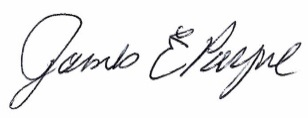 James E Payne